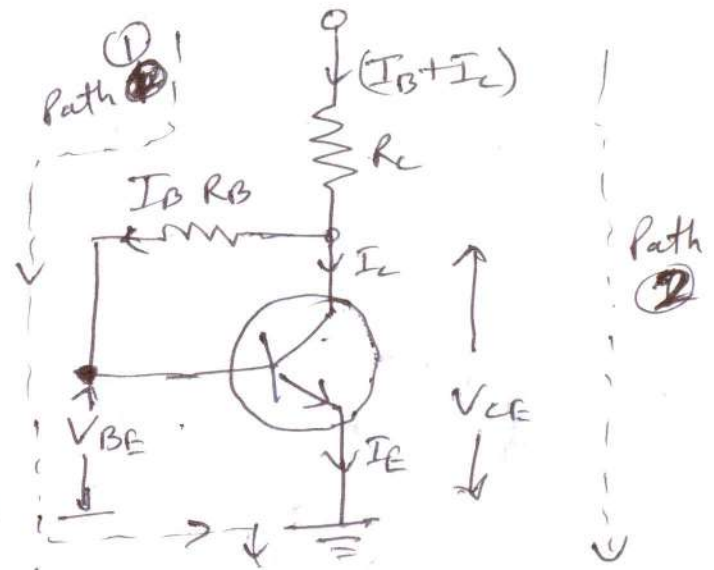 ①
Path
(I_B+I_C)
R_C
I_B R_B
I_C
Path
②
V_CE
V_BE
I_E